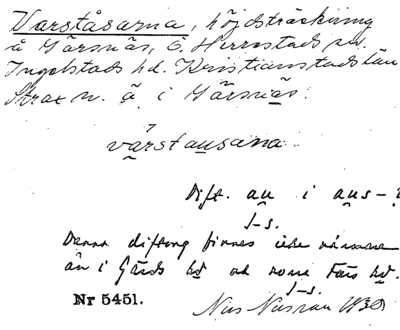 Varståsarna, höjdsträckning
å Gärsnäs, Ö. Herrestads sn.
Ingelstads hd. Kristianstads län
Strax n. å i Gärsnäs.
vārstau̲sana
Dift. au̲ i au̲s-?
J-s.
Denna diftong finnes icke närmare
än i Gärds hd och norra Färs hd.
J-s.
Nr 5451.